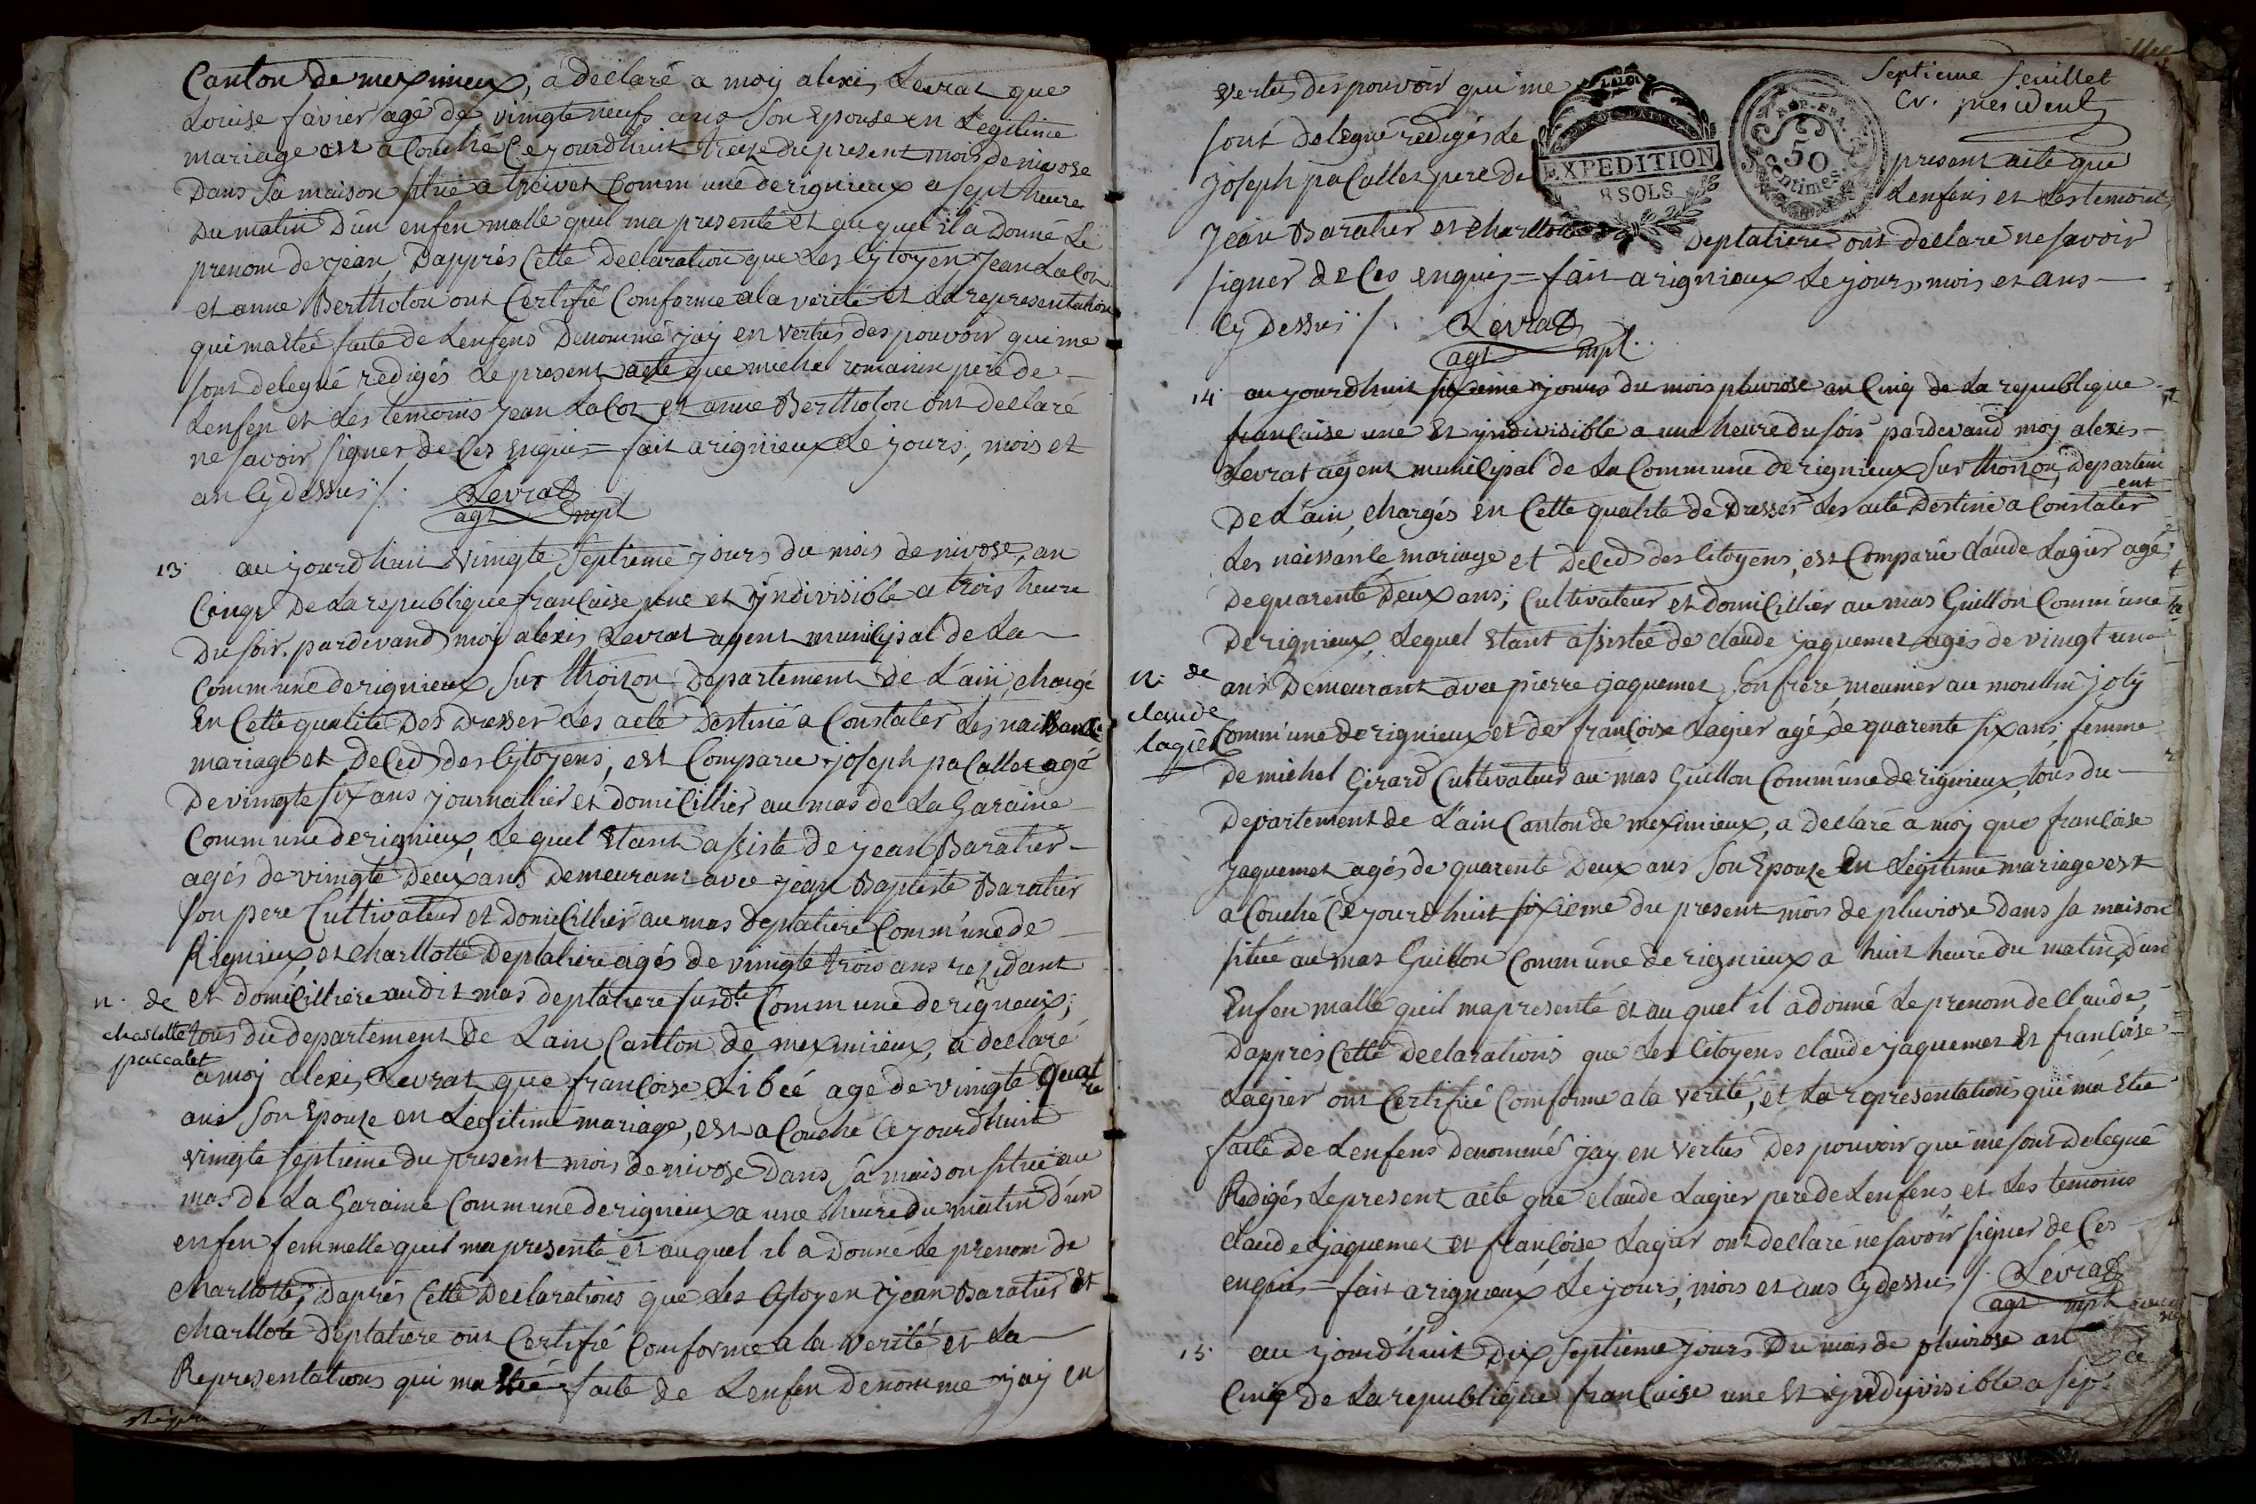 Canton de meximieux, a declaré a moy alexi Levrat que
Louise favier agé de vingte neufs ans son Epouse en Legitime
mariage est a Couché Ce jourdhuit treize du present mois de nivose
Dans sa maison situé a treivet Comm'une derignieux a sept heure
Du matin D'un enfen malle quil ma presenté et au quel il a Donné Le
prenom de jean Dapprés Cette Declaration que Les Cytoyen Jean Lacot
et anne Bertholon ont Certifié Comforme a la verité et La representation
qui ma étée faite de Lenfens Denommé jay en vertus des pouvoir qui me
sont delegué redigés Le present acte que michel romanin pere de
Lenfen et Les temoins jean Lacot et anne Bertholon ont declaré
ne savoir signer de Ces enquis = fait a rignieux Le jours, mois et
an Cy dessus /.
Levrat
agt mpl
13. au jourdhuit Vingte Septieme jours du mois de nivose, an
Cinqe De La republique francaise une et yndivisible a trois heure
Du soir. pardevand moy alexi Levrat agent municipal de La
Comm'une derignieux Sur thoizon Departement de L'ain, chargé
En Cette qualité Des Dresser Les acte Destiné a Constater Les naissance
mariage et Deced des Cytoyens, est Comparu joseph paCallet agé
De vingte six ans journallier et domiCillier au mas de La Garaine
Comm'une derignieux, Le quel Etant assiste de jean Baratier
agés de vingte Deux ans Demeurant avec jean Baptiste Baratier
son pere Cultivateur et DomiCillier au mas deplatiere Comm'une de
Rignieux, et charllotte Deplatiere agés de vingte trois ans residant
et domiCilliere audit mas deplatiere susdte. Comm'une derignieux,
n. de
charlotte
paccalet
tous du departement de L'ain Canton de meximieux, a declaré
a moy alexi Levrat que francoise Libéé age de vingte quatre
ans Son Epouze en Legitime mariage, est a Couché Ce jourdhuit
vingte septieme du present mois de nivose Dans sa maison situé au
mas de La Garaine Comm'une derignieux a une heure du matin d'un
enfen femmelle quil ma presenté et auquel il a Donné Le prenom de
charllotte, Daprés Cette Declarations que Les Cytoyen jean Baratier et
charllote Deplatiere ont Certifié Comforme a la verité et La
Representations qui ma Etée faite de Lenfen denomme jay en
Septieme feuillet
Cr. president
LA LOI
EXPEDITION
8 SOLS
50
Centimes
vertus des pouvoir qui me
sont delegué redigés Le present acte que
joseph paCallet pere de Lenfens et Les temoins
jean Baratier et charllotte Deplatiere ont declaré ne savoir
signer de Ces enquis = fait a rignieux Le jours, mois et ans
Cy Dessus /.
Levrat
agt mpl.
14 au jourdhuit sixieme jours du mois pluviose an Cinq de La republique
francaise une Et yndivisible a une heure du soir pardevand moy alexi
Levrat agent municipal de La Commune derignieux Sur thoizon, departement
De L'ain, chargés en Cette qualité de Dresser Les acte Destiné a Constater
Les naissance mariage et Deced des Citoyens, est Comparu Claude Lagier agé
De quarente Deux ans, Cultivateur et domiCillier au mas Guillon Comm'une
Derignieux, Lequel Etant assistée de claude jaquemet agés de vingt une
n. de
claude
lagier
ans Demeurant avec pierre jaquemet, son frere, meunier au moullin joly
Comm'une derignieux et de francoise Lagier agé de quarente six ans, femme
De michel Girard Cultivateur au mas Guillon Comm'une derignieux, tous du
Departement de L'ain Canton de meximieux, a declaré a moy que francoise
jaquemet agés de quarente Deux ans Son Epouze En Légitime mariage est
a Couché Ce jourdhuit sixieme du present mois de pluviose Dans sa maison
située au mas Guillon Comm'une de rignieux a huit heure du matin, d'un
Enfen malle quil ma presenté et au quel il a donné Le prenom de Claude,
Dapprés Cette Declarations que Les Citoyens claude jaquemet Et francoise
Lagier ont Certifié Comforme a la verité, et La representations qui ma Etée
faite De Lenfens denommé jay en vertus Des pouvoir qui me sont delegué
Redigés Le present acte que claude Lagier pere de Lenfens et Les temoins
claude jaquemet et françoise Lagier ont declaré ne savoir signer de Ces
enquis = fait a rignieux Le jours, mois et ans Cy dessus /.
Levrat
agt mpl
15. au jourdhuit Dix septieme jours Du mois de pluviose an
Cinq de La republique francaise une Et yndyvisible a sept